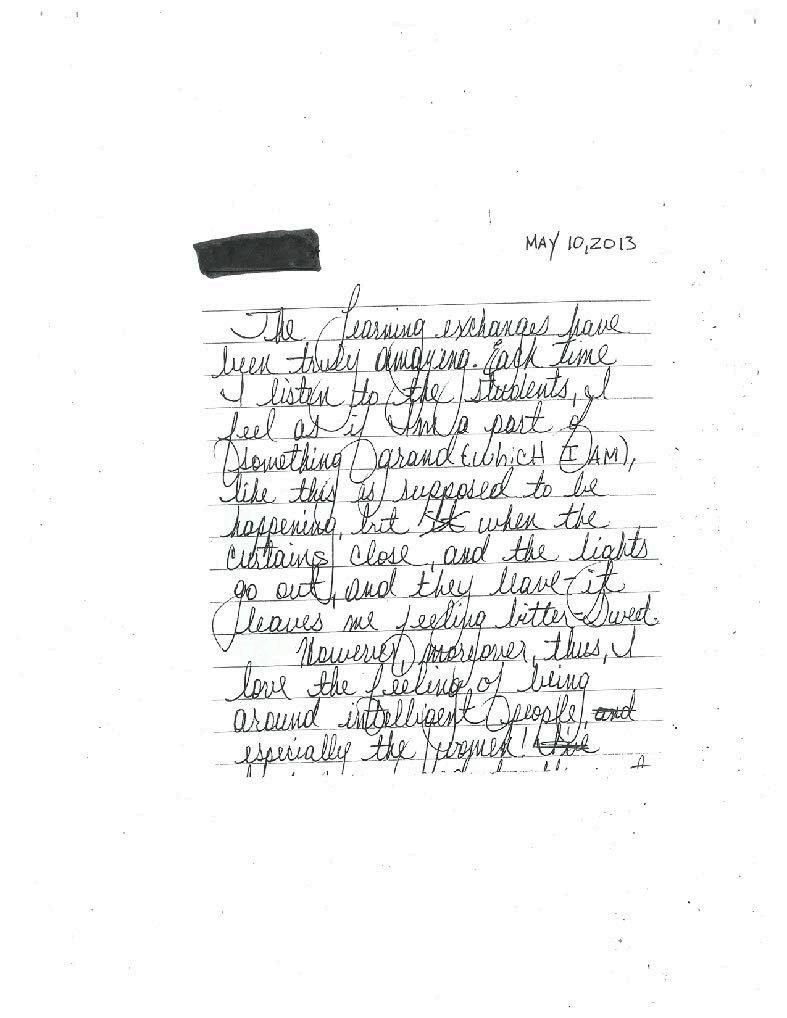 MAY 10, 2013
The Learning exchanges have
been truly amazing. Each time
I listen to the students, I
feel as if I'm a part of
something grand (which I AM),
like this is supposed to be
happening, but it when the
curtains close, and the lights
go out, and they leave-it
leaves me feeling bitter-sweet.
However, moreover, thus, I
love the feeling of being
around intelligent people, and
especially the women!